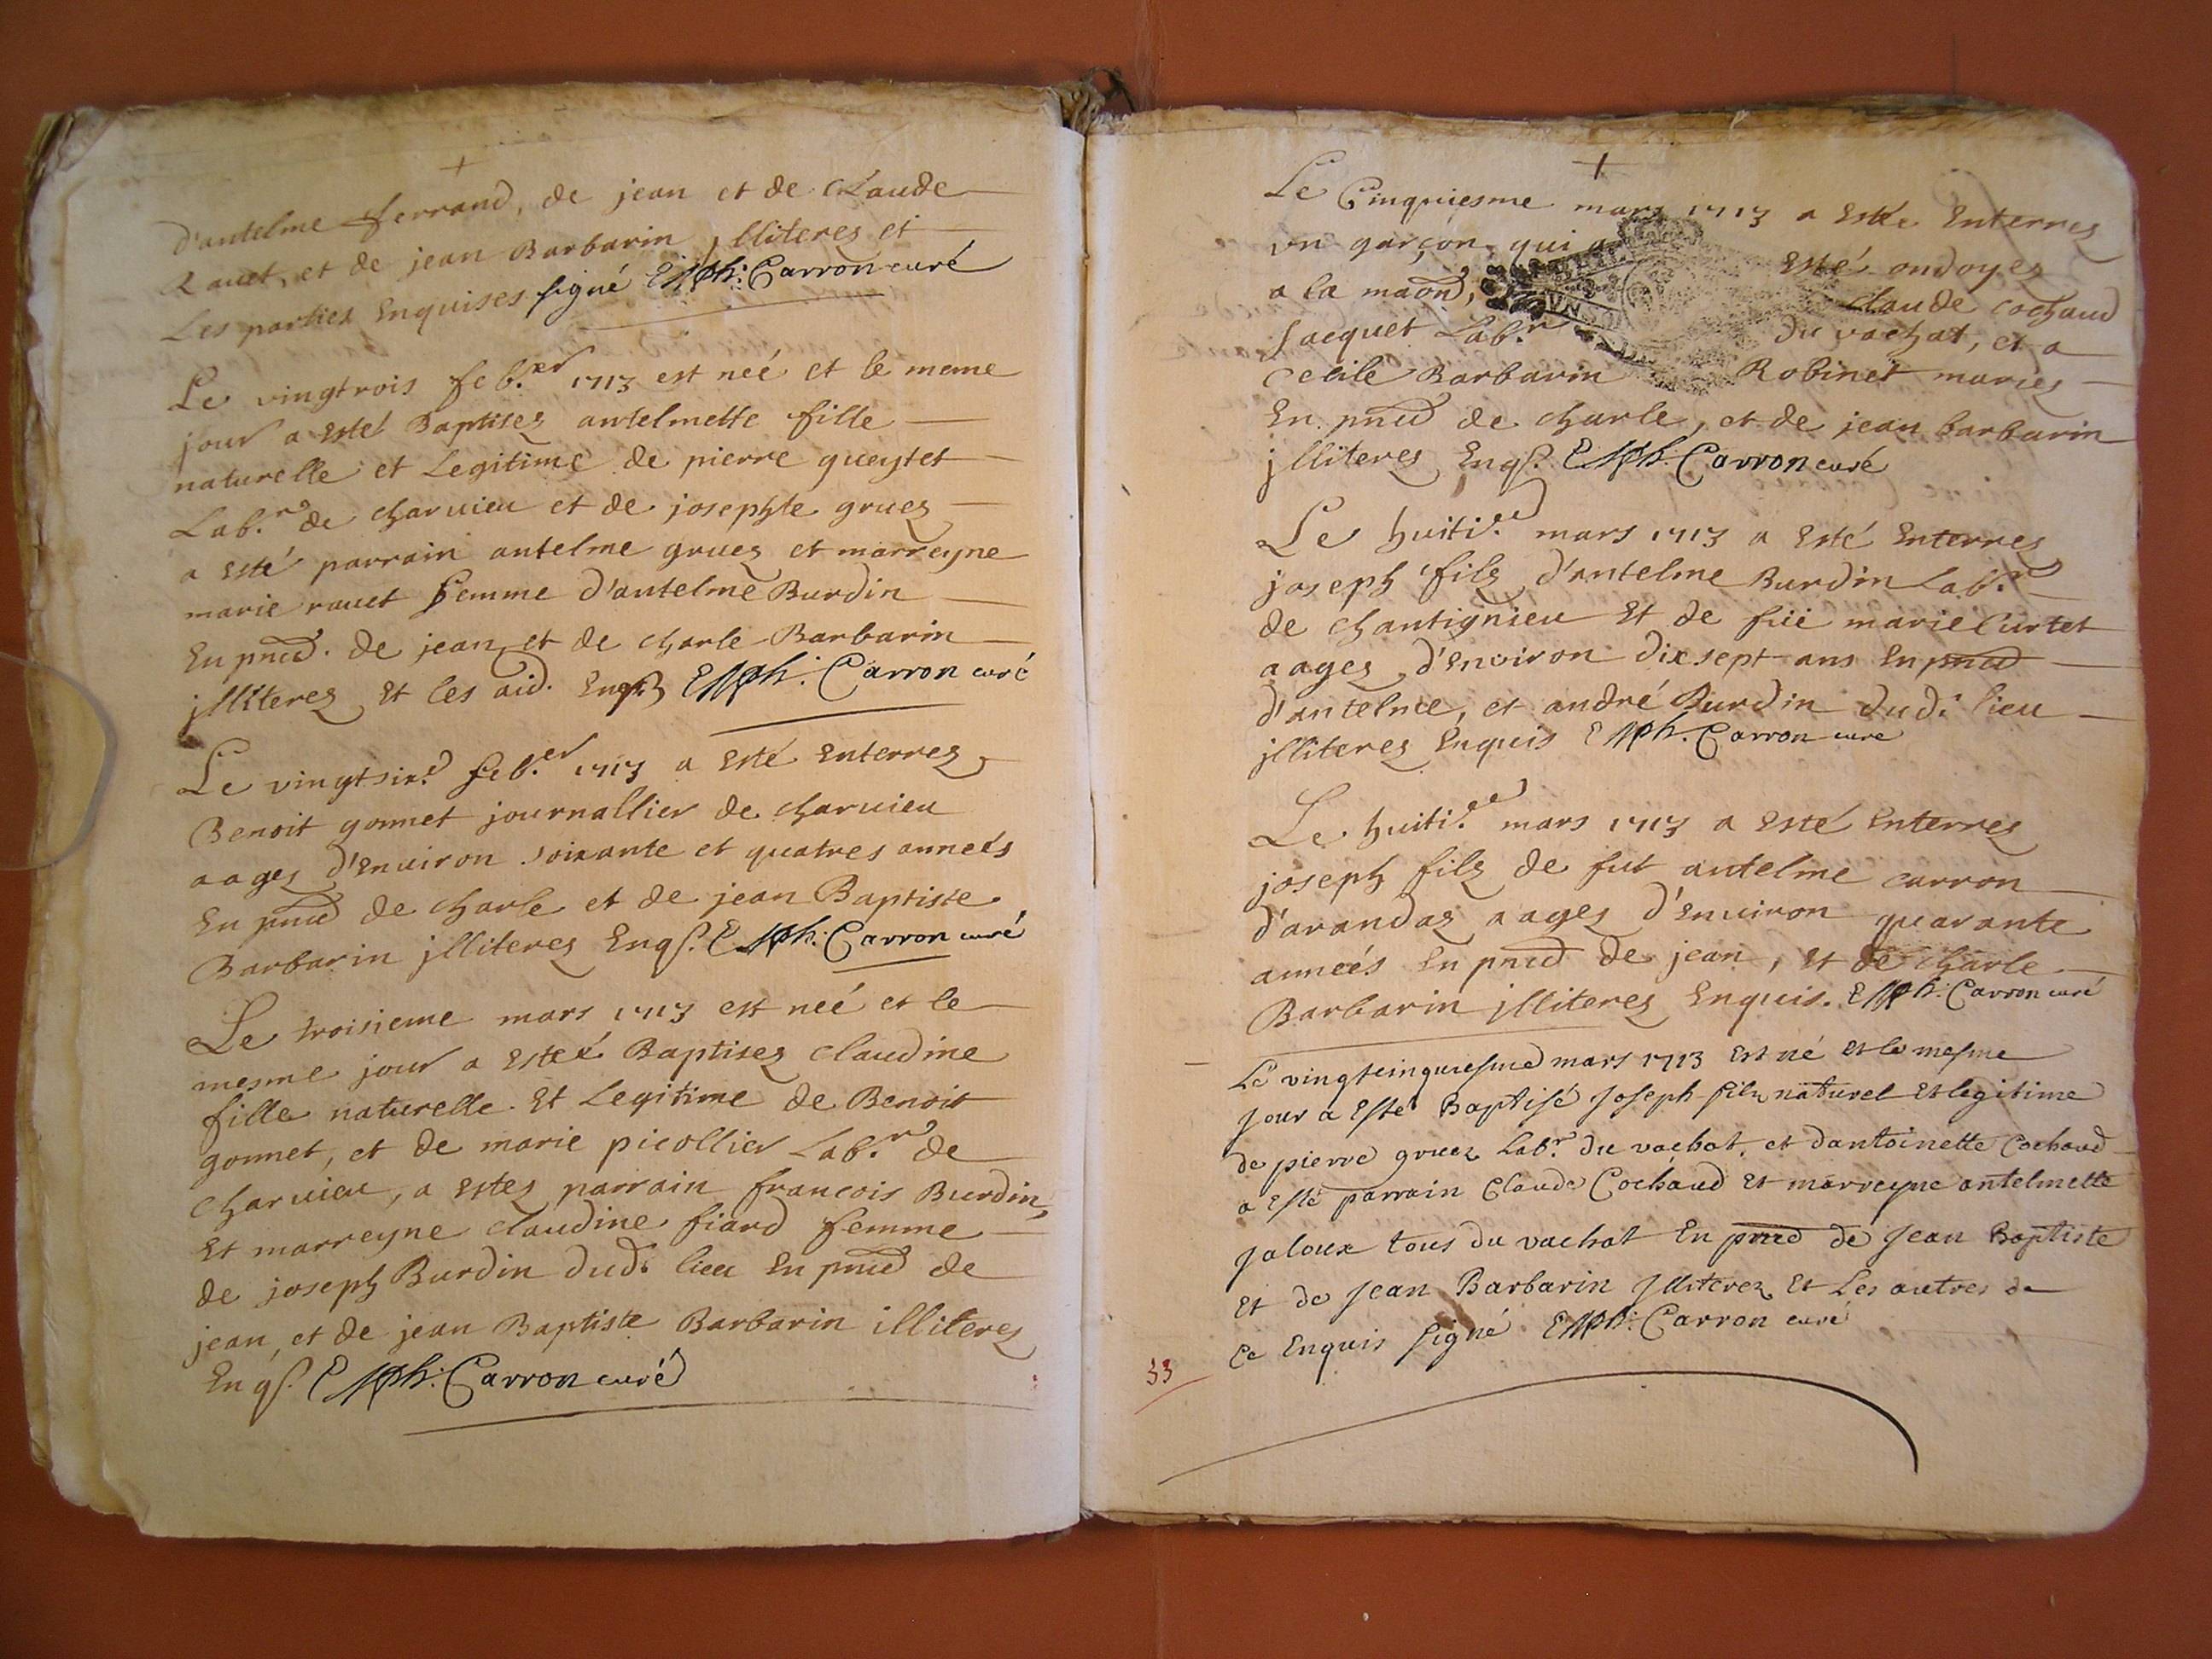 d'antelme ferrand, de jean et de claude
Ravet, et de jean Barbarin jlliteres et
Les parties Enquises signé Carron curé
Le vingtrois feb.er 1713 est neé et le meme
jour a esté Baptisez antelmette fille
naturelle et Legitime de pierre gueytet
Lab.r de charuieu et de josephte gruez
a esté parrain antelme gruez et marreyne
marie rauet femme d'antelme Burdin
En pnce. de jean, et de charle Barbarin
jlliterez et les aud. Enqs Carron curé
Le vingtsix.e feb.er 1713 a esté Enterrez
Benoit gonnet journallier de charuieu
aagez d'enuiron soixante et quatres anneés
En pnce de charle et de jean Baptiste
Barbarin jlliterez Enqs. Carron curé
Le troisieme mars 1713 est neé et le
mesme jour a esteé Baptisez claudine
fille naturelle et Legitime de Benoit
gonnet, et de marie picollier Lab.r de
charuieu, a estez parrain francois Burdin,
et marreyne claudine fiard femme
de joseph Burdin dud. lieu En pnce de
jean, et de jean Baptiste Barbarin illiterez
Enqs. Carron curé
Le Cinquiesme mars 1713 a estée Enterrez
un garçon qui a esté ondoyez
a la maon, claude cochaud
Jacquet Lab.r du vachat, et a
cecile Barbarin Robinet mariez
En pnce de charle, et de jean barbarin
jlliterez Enqs. Carron curé
Le huiti.e mars 1713 a esté Enterrez
joseph filz d'antelme Burdin Lab.r
de chantignieu et de fuë marie Curtet
aagez d'environ dix sept ans En pnce
d'antelme, et andré Burdin dud. lieu
jlliterez Enquis Carron curé
Le huiti.e mars 1713 a esté Enterrez
joseph filz de fut antelme carron
d'arandaz aagez d'enuiron quarante
anneés En pnce de jean, et de charle
Barbarin jlliterez Enquis. Carron curé
Le vingtcinquiesme mars 1713 est né et le mesme
jour a esté Baptisé joseph filz naturel et legitime
de pierre gruez Lab.r du vachat, et dantoinette Cochaud
a esté parrain Claude Cochaud et marreyne antelmette
jaloux tous du vachat En pnce de jean Baptiste
et de jean Barbarin jlliterez et Les autres de
ce Enquis signé Carron curé
33